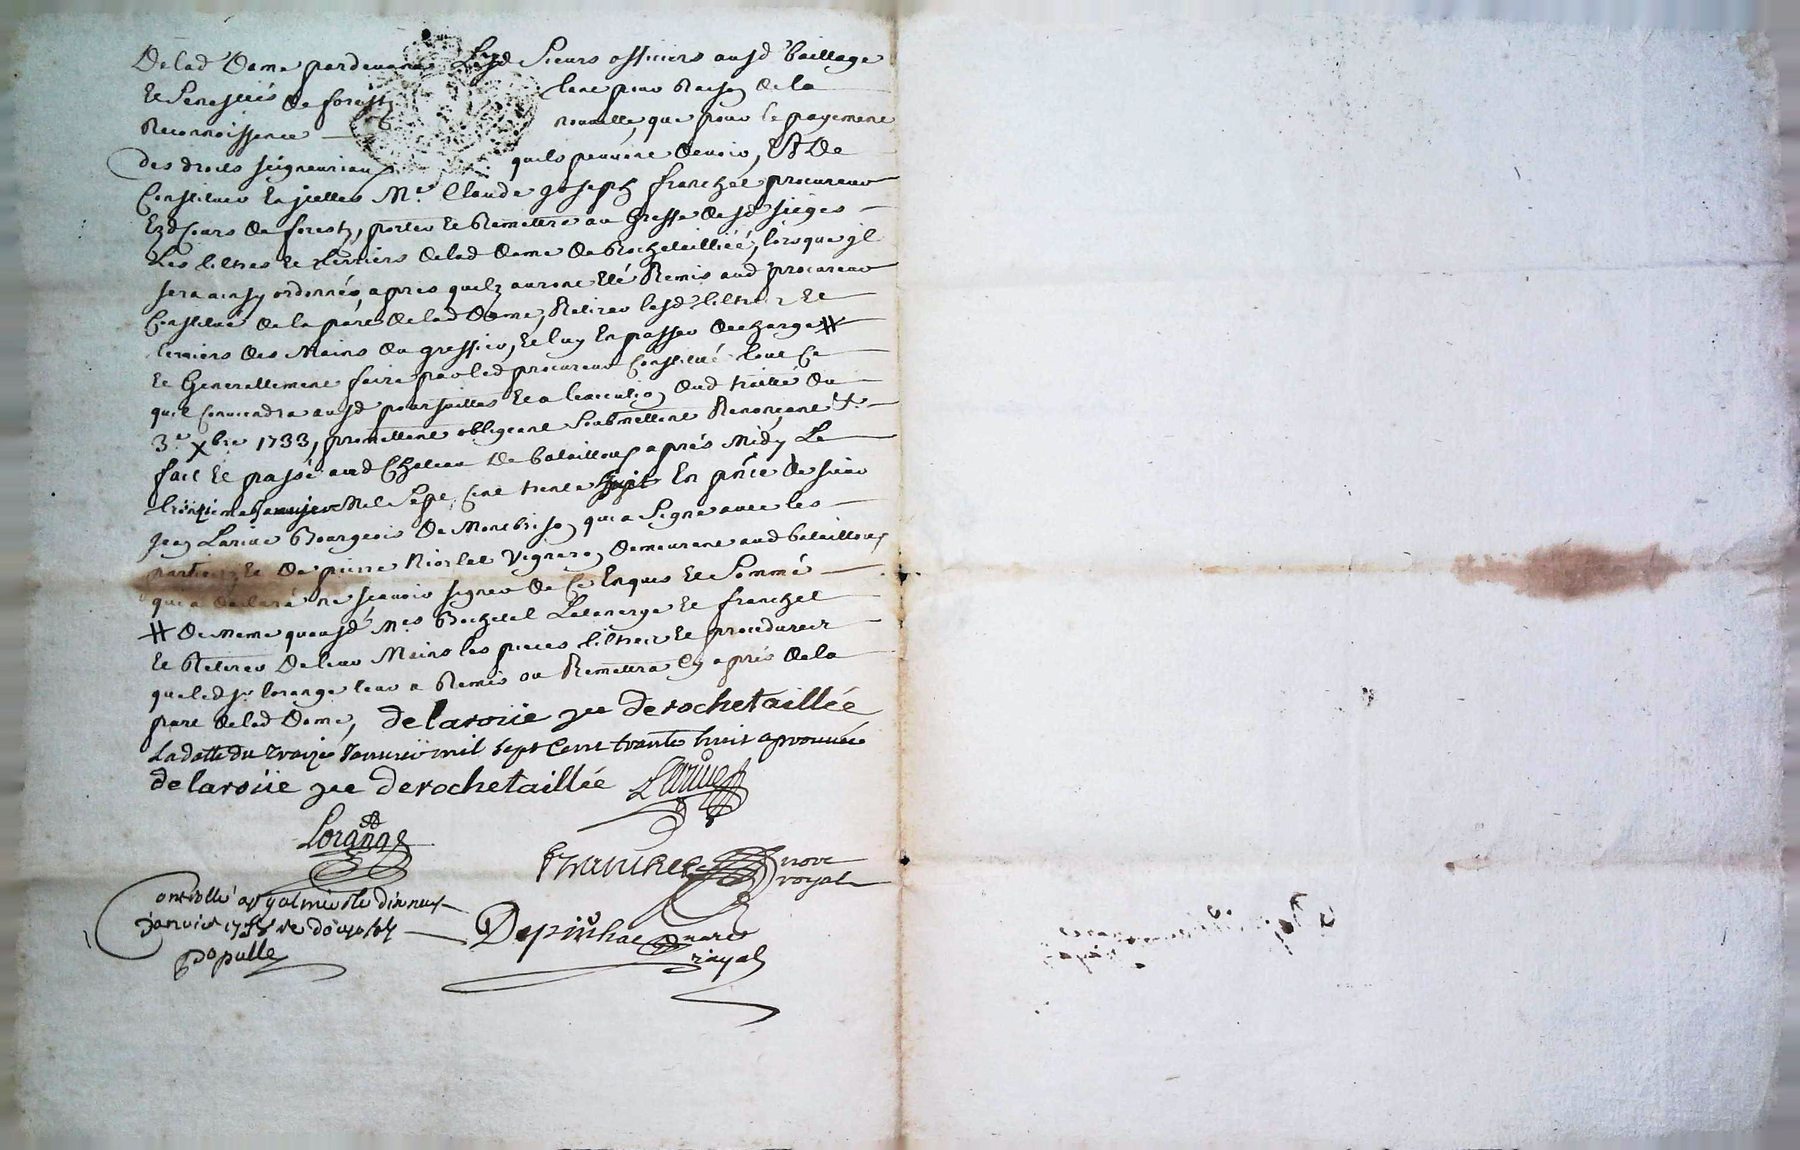 De lad Dame pardevant Lesd Sieurs officiers ausd Baillage
Et Seneschés de forest tant pour Raison de la
Reconnoissance nouvelle, que pour le payement
des droits seigneuriaux quils peuvent devoir, Et De
Constituer En icelles Me. Claude Joseph franchet procureur
Ezd Cours de forestz, porter Et Remettre au Greffe desd sieges
Les tiltres Et terriers delad dame de Rochetailliée, lorsque jl
sera ainsy ordonnés, apres quelz auront Eté Remis aud procureur
Constitué de la part delad Dame, Retirer lesd tiltres Et
terriers des Mains du greffier, Et luy En passer decharge #
Et Generallement faire par led procureur Constitué tout Ce
quil Conviendra ausd poursuittes Et a lexecution dud traitté du
3e. xbre 1733, promettant obligeant Soubmettant Renonçant &.
fait Et passé aud Chateau de batailloux apres Midy Le
treizieme Janvier Mil Sept Cent trente huit En pñce de sieur
Jean Larive Bourgeois de Montbrison qui a Signé avec les
parties, Et de pierre Vigneron demeurant aud batailloux
qui a declaré ne sçavoir signer de Ce Enquis Et Sommé
# De meme quausd Mes Bochetel Et franchet
Et Retirer de leur Mains les pieces tiltres Et procedures
que led sr lorange leur a Remis ou Remettra Cy apres de la
part delad Dame, de laroüe de rochetaillée
La datte du treizé Janvier mil sept Cent trante huit aprouvée
de laroüe de rochetaillée Larive
Lorange
franchet nore
royal
Controllé a St galmier le dix neuf
Janvier 1738
Depuihac nore
royal
populle